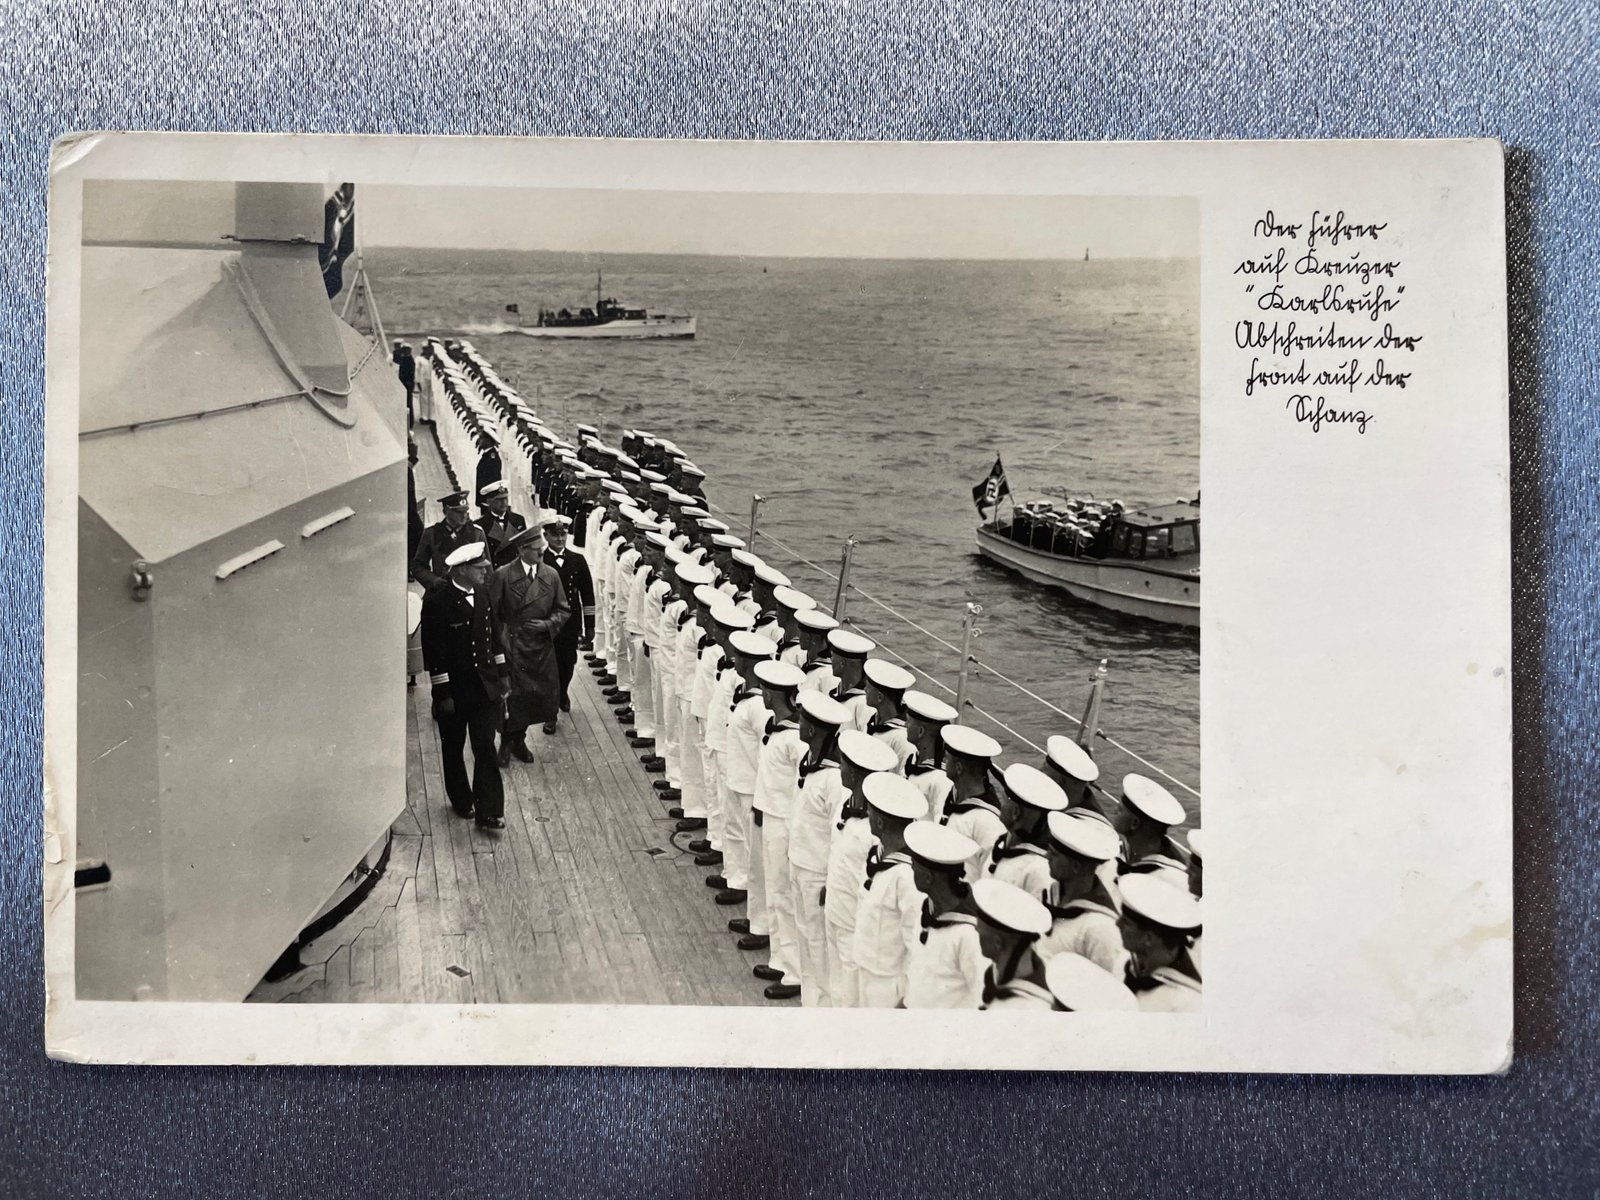 Der Führer
auf Kreuzer
"Karlsruhe"
Abschreiten der
Front auf der
Schanz.